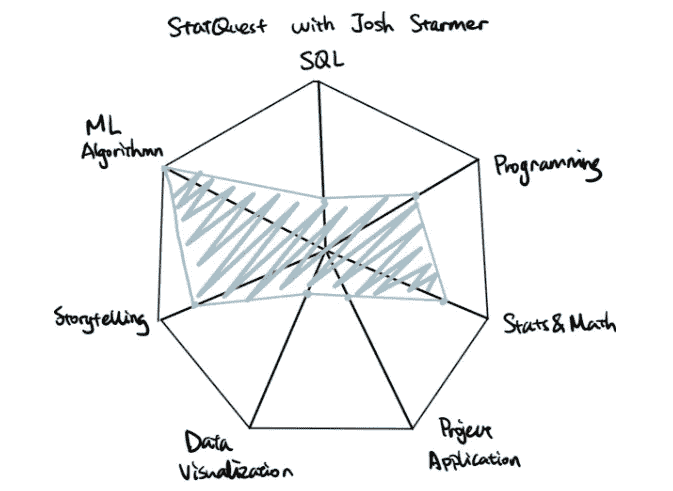 StatQuest with Josh Starmer
SQL
ML
Algorithmn
Programming
Storytelling
Stats & Math
Data
Visualization
Project
Application